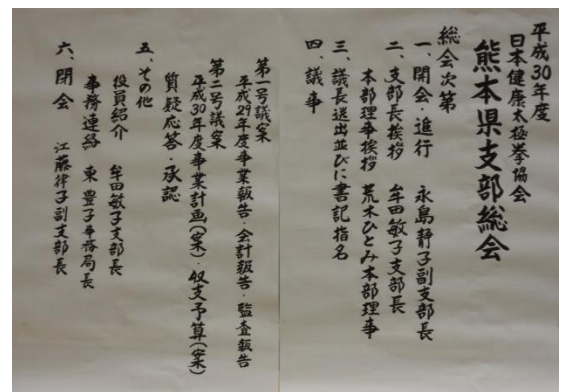 平成30年度
日本健康太極拳協会
熊本県支部総会
総会次第
一、開会・進行 永島靜子副支部長
二、支部長挨拶 牟田敏子支部長
本部理事挨拶 荒木ひとみ本部理事
三、議長送出並びに書記指名
四、議事
第一号議案
平成29年度事業報告・会計報告・監査報告
第二号議案
平成30年度事業計画(案)・収支予算(案)
質疑応答・承認
五、その他
役員紹介 牟田敏子支部長
事務連絡 東豊子事務局長
六、閉会 江藤律子副支部長